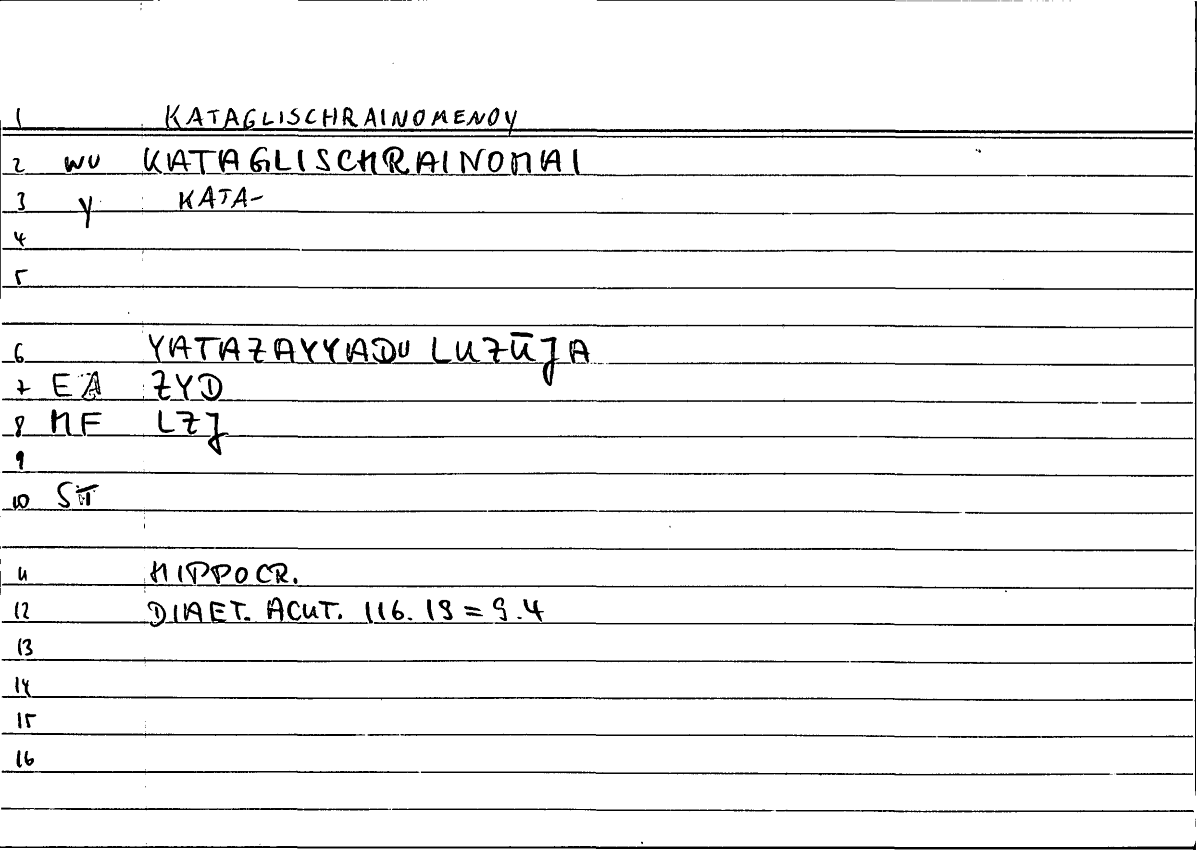 1 KATAGLISCHRAINOMENOY
2 WU KATAGLISCHRAINOMAI
3 Y KATA-
4
5
6 YATAZAYYADU LUZŪJA
7 EA ZYD
8 MF LZJ
9
10 ST
11 HIPPOCR.
12 DIAET. ACUT. 116.19 = 9.4
13
14
15
16